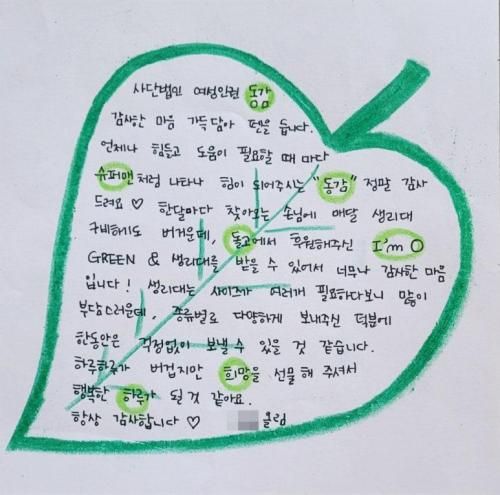 사단법인 여성인권 동감
감사한 마음 가득담아 펜을 듭니다.
언제나 힘들고 도움이 필요할 때 마다
슈퍼맨처럼 나타나 힘이 되어주시는 "동감" 정말 감사
드려요 ♡ 한달마다 찾아오는 손님에 매달 생리대
구비해도 버거운데, 돌고에서 후원해주신 I'm O
GREEN & 생리대를 받을 수 있어서 너무나 감사한 마음
입니다! 생리대는 사이즈가 여러개 필요하다보니 많이
부담스러운데, 종류별로 다양하게 보내주신 덕분에
한동안은 걱정없이 보낼 수 있을 것 같습니다.
하루하루가 버겁지만 희망을 선물 해 주셔서
행복한 하루가 될 것 같아요.
항상 감사합니다 ♡ 올림